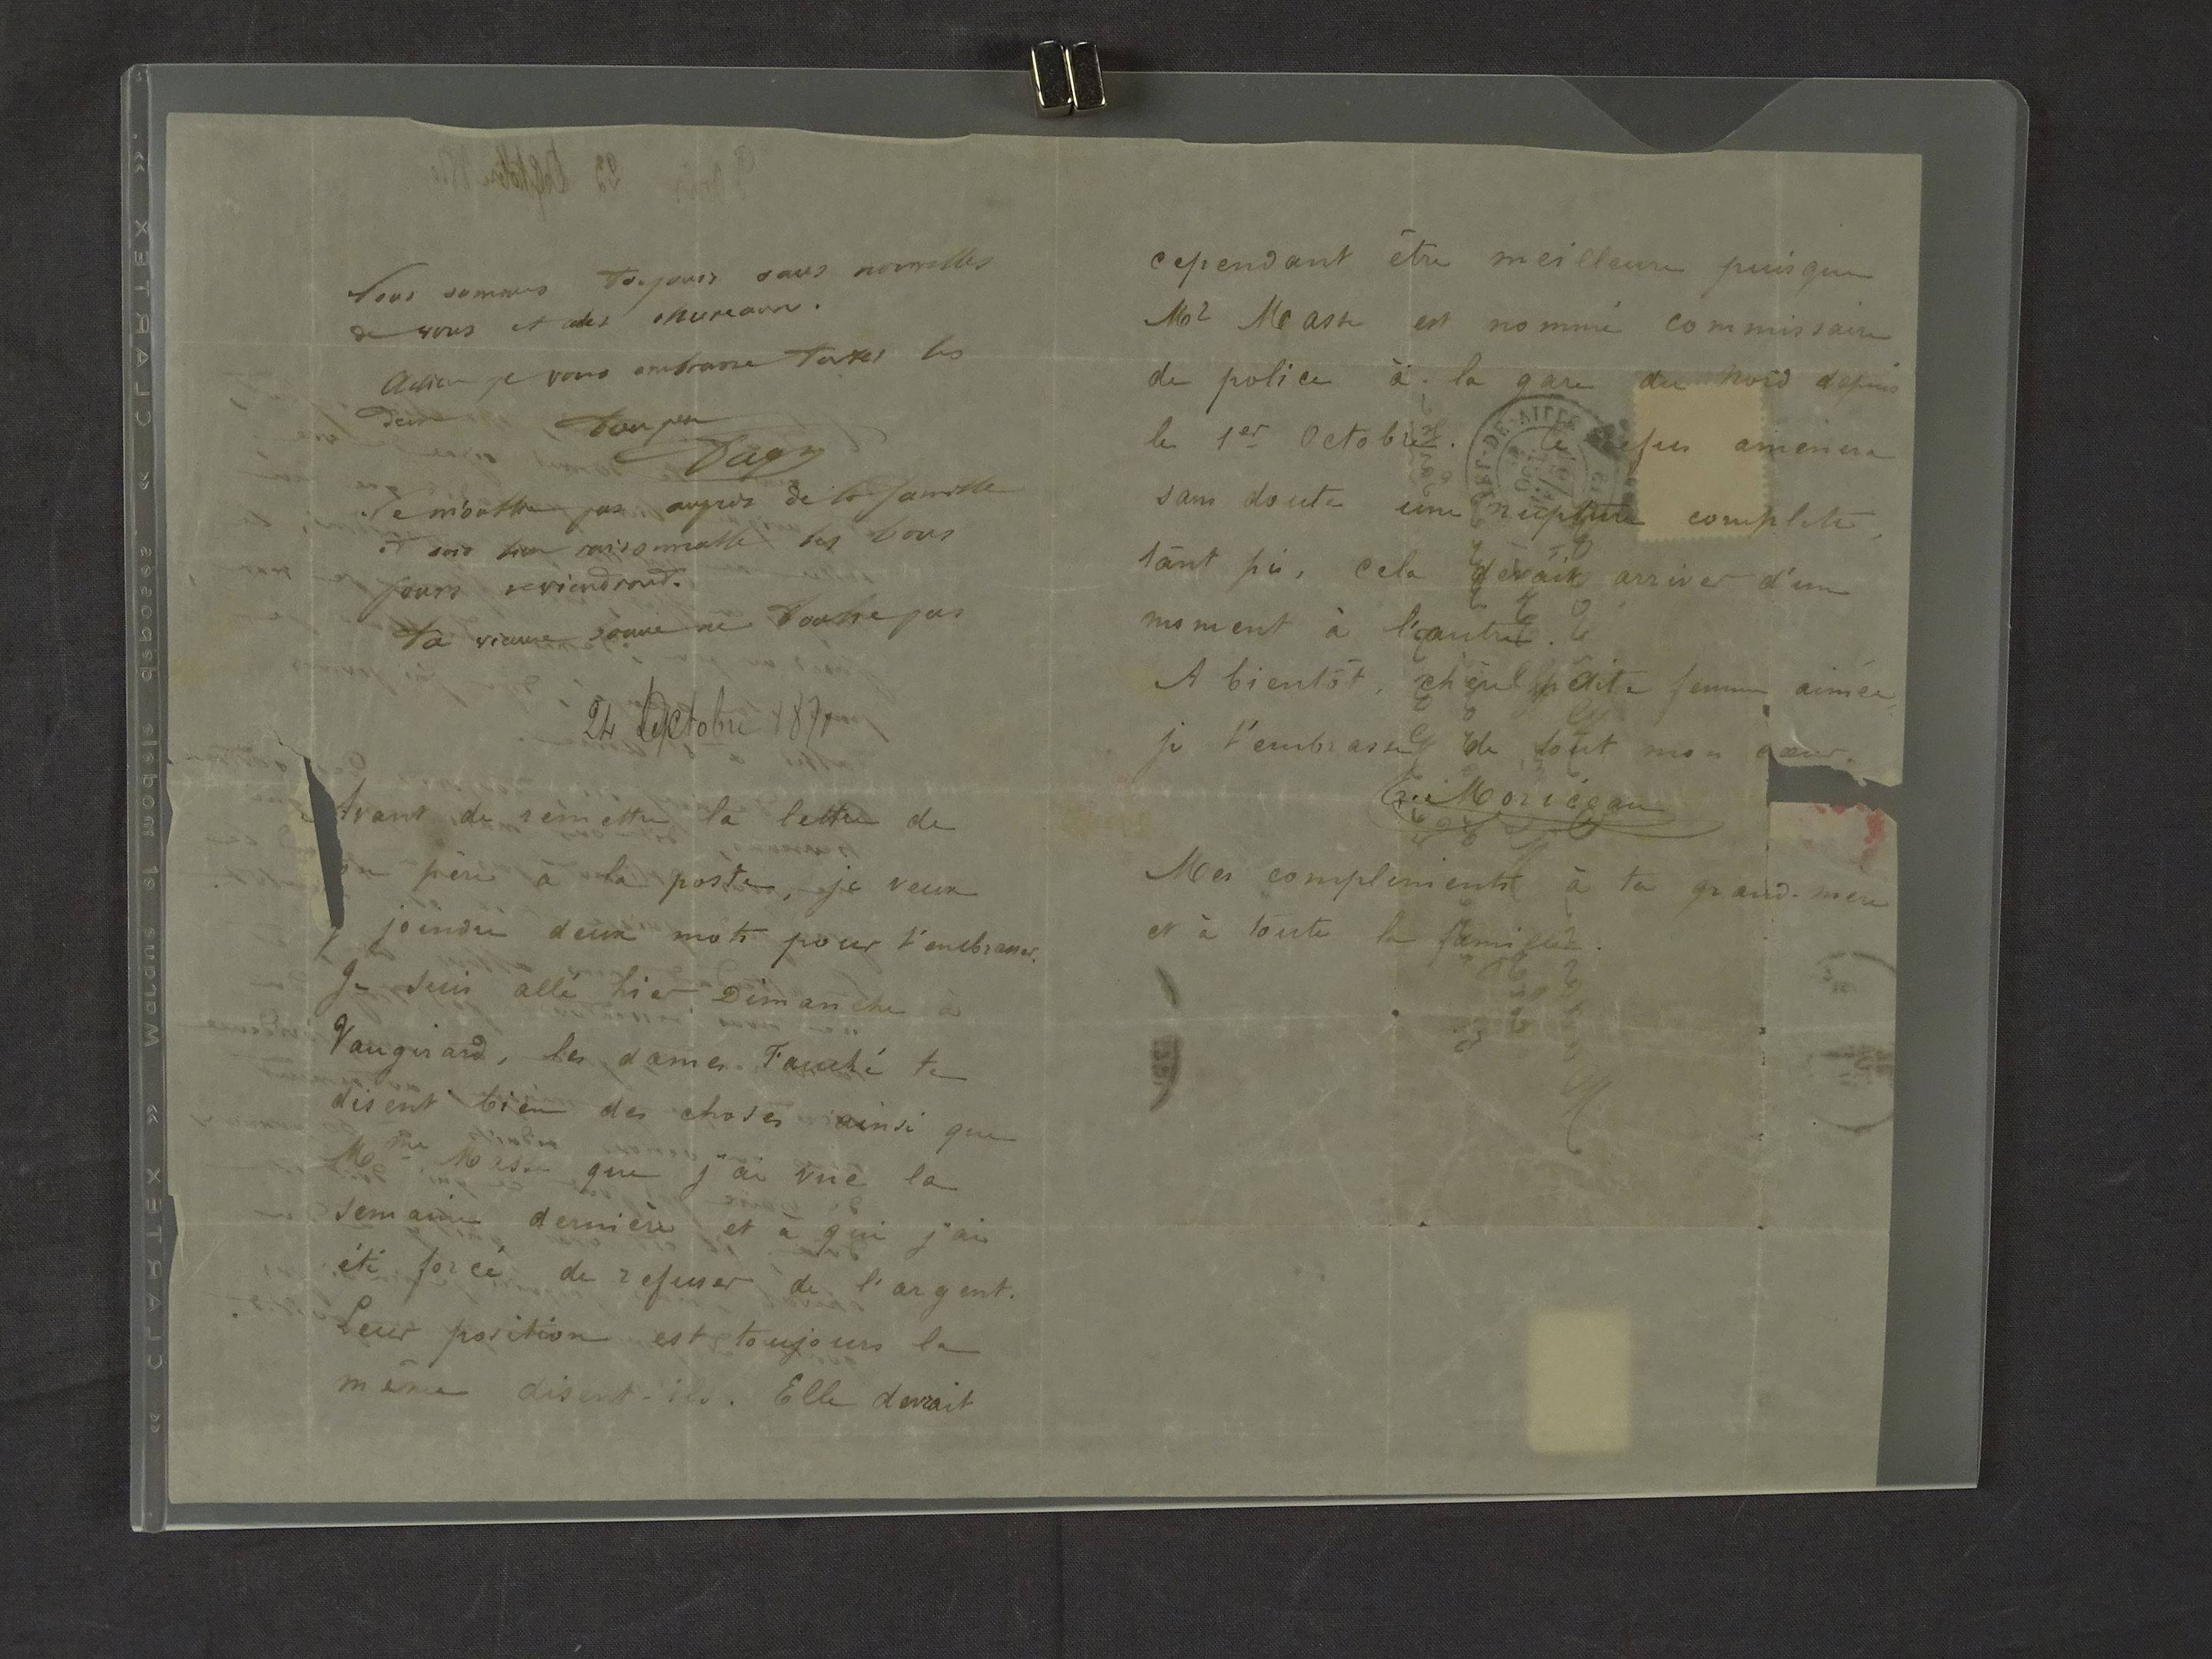 Nous sommes toujours sans nouvelles
de vous et des
Adieu je vous embrasse toutes les
deux Ton père
Dagy
Ne m'oublie pas auprès de la famille
et sois bien raisonnable les bons
jours reviendront.
Ta vienne ne touche pas
24 Octobre 1870
Avant de remettre la lettre de
ton père à la poste, je veux
y joindre deux mots pour t'embrasser.
Je suis allé hier Dimanche à
Vaugirard, les dames Fauché te
disent bien des choses ainsi que
Mme Masse que j'ai vue la
semaine dernière et à qui j'ai
été forcé de refuser de l'argent.
Leur position est toujours la
même disent-ils. Elle devrait
cependant être meilleure puisque
Mr Masse est nommé commissaire
de police à la gare du Nord depuis
le 1er Octobre. Ce refus amènera
sans doute une rupture complète,
tant pis, cela devait arriver d'un
moment à l'autre.
A bientôt, chère petite femme aimée,
je t'embrasse de tout mon cœur.
Moriceau
Mes compliments à ta grand-mère
et à toute la famille.
« CLAIRTEX » depossé modele le Wandus « CLAIRTEX »